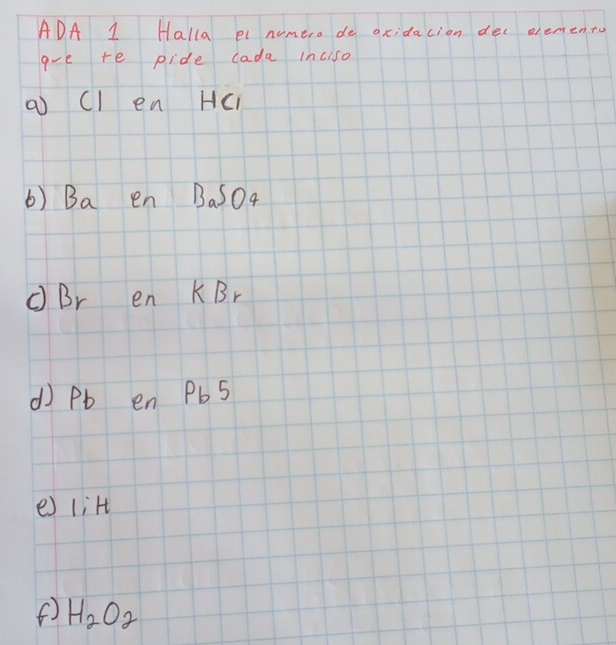 ADA 1 Halla el numero de oxidacion del elemento
que te pide cada inciso
a) Cl en HCl
b) Ba en BaSO4
c) Br en KBr
d) Pb en PbS
e) liH
f) H₂O₂